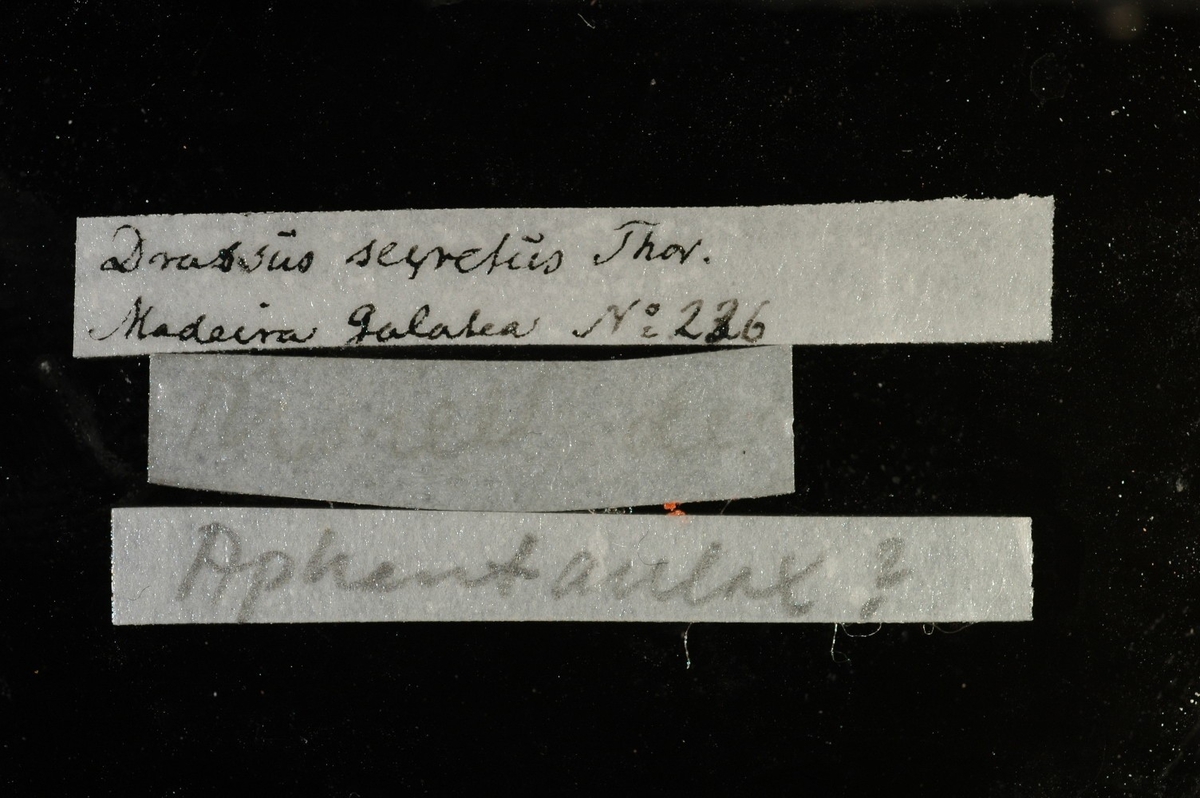 Drassüs secretüs Thor.
Madeira Galatea No: 226
Aphantaulax ?